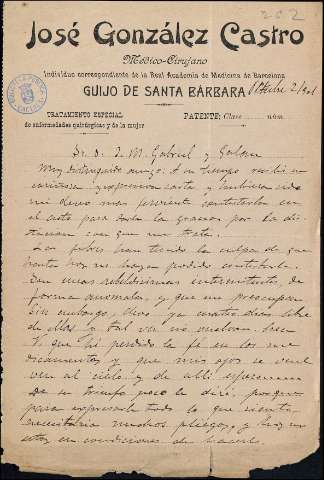 202
José González Castro
Médico-Cirujano
Individuo correspondiente de la Real Academia de Medicina de Barcelona
GUIJO DE SANTA BÁRBARA
2/901
TRATAMIENTO ESPECIAL
de enfermedades quirúrgicas y de la mujer
PATENTE; Clase ...... núm.
Sr. D. J. M. Gabriel y Galán
Muy distinguido amigo: A su tiempo recibí su
cariñosa y expresiva carta y hubiera sido
mi deseo mas ferviente contestarla en
el acto para darle las gracias por la
con que me trata.
Las fiebres han tenido la culpa de que
hasta hoy no haya podido contestarla.
Son unas intermitentes, de
forma anomala, y que me preocupan.
Sin embargo, llevo ya cuatro dias libre
de ellas y tal vez no vuelvan, pues
que he perdido la fé en los me
dicamentos y que mis ojos se vuel
ven al cielo y de allí
De su triunfo poco le diré, porque
para expresarle todo lo que siento
necesitaria muchos pliegos, y hoy no
estoy en condiciones de hacerlo.